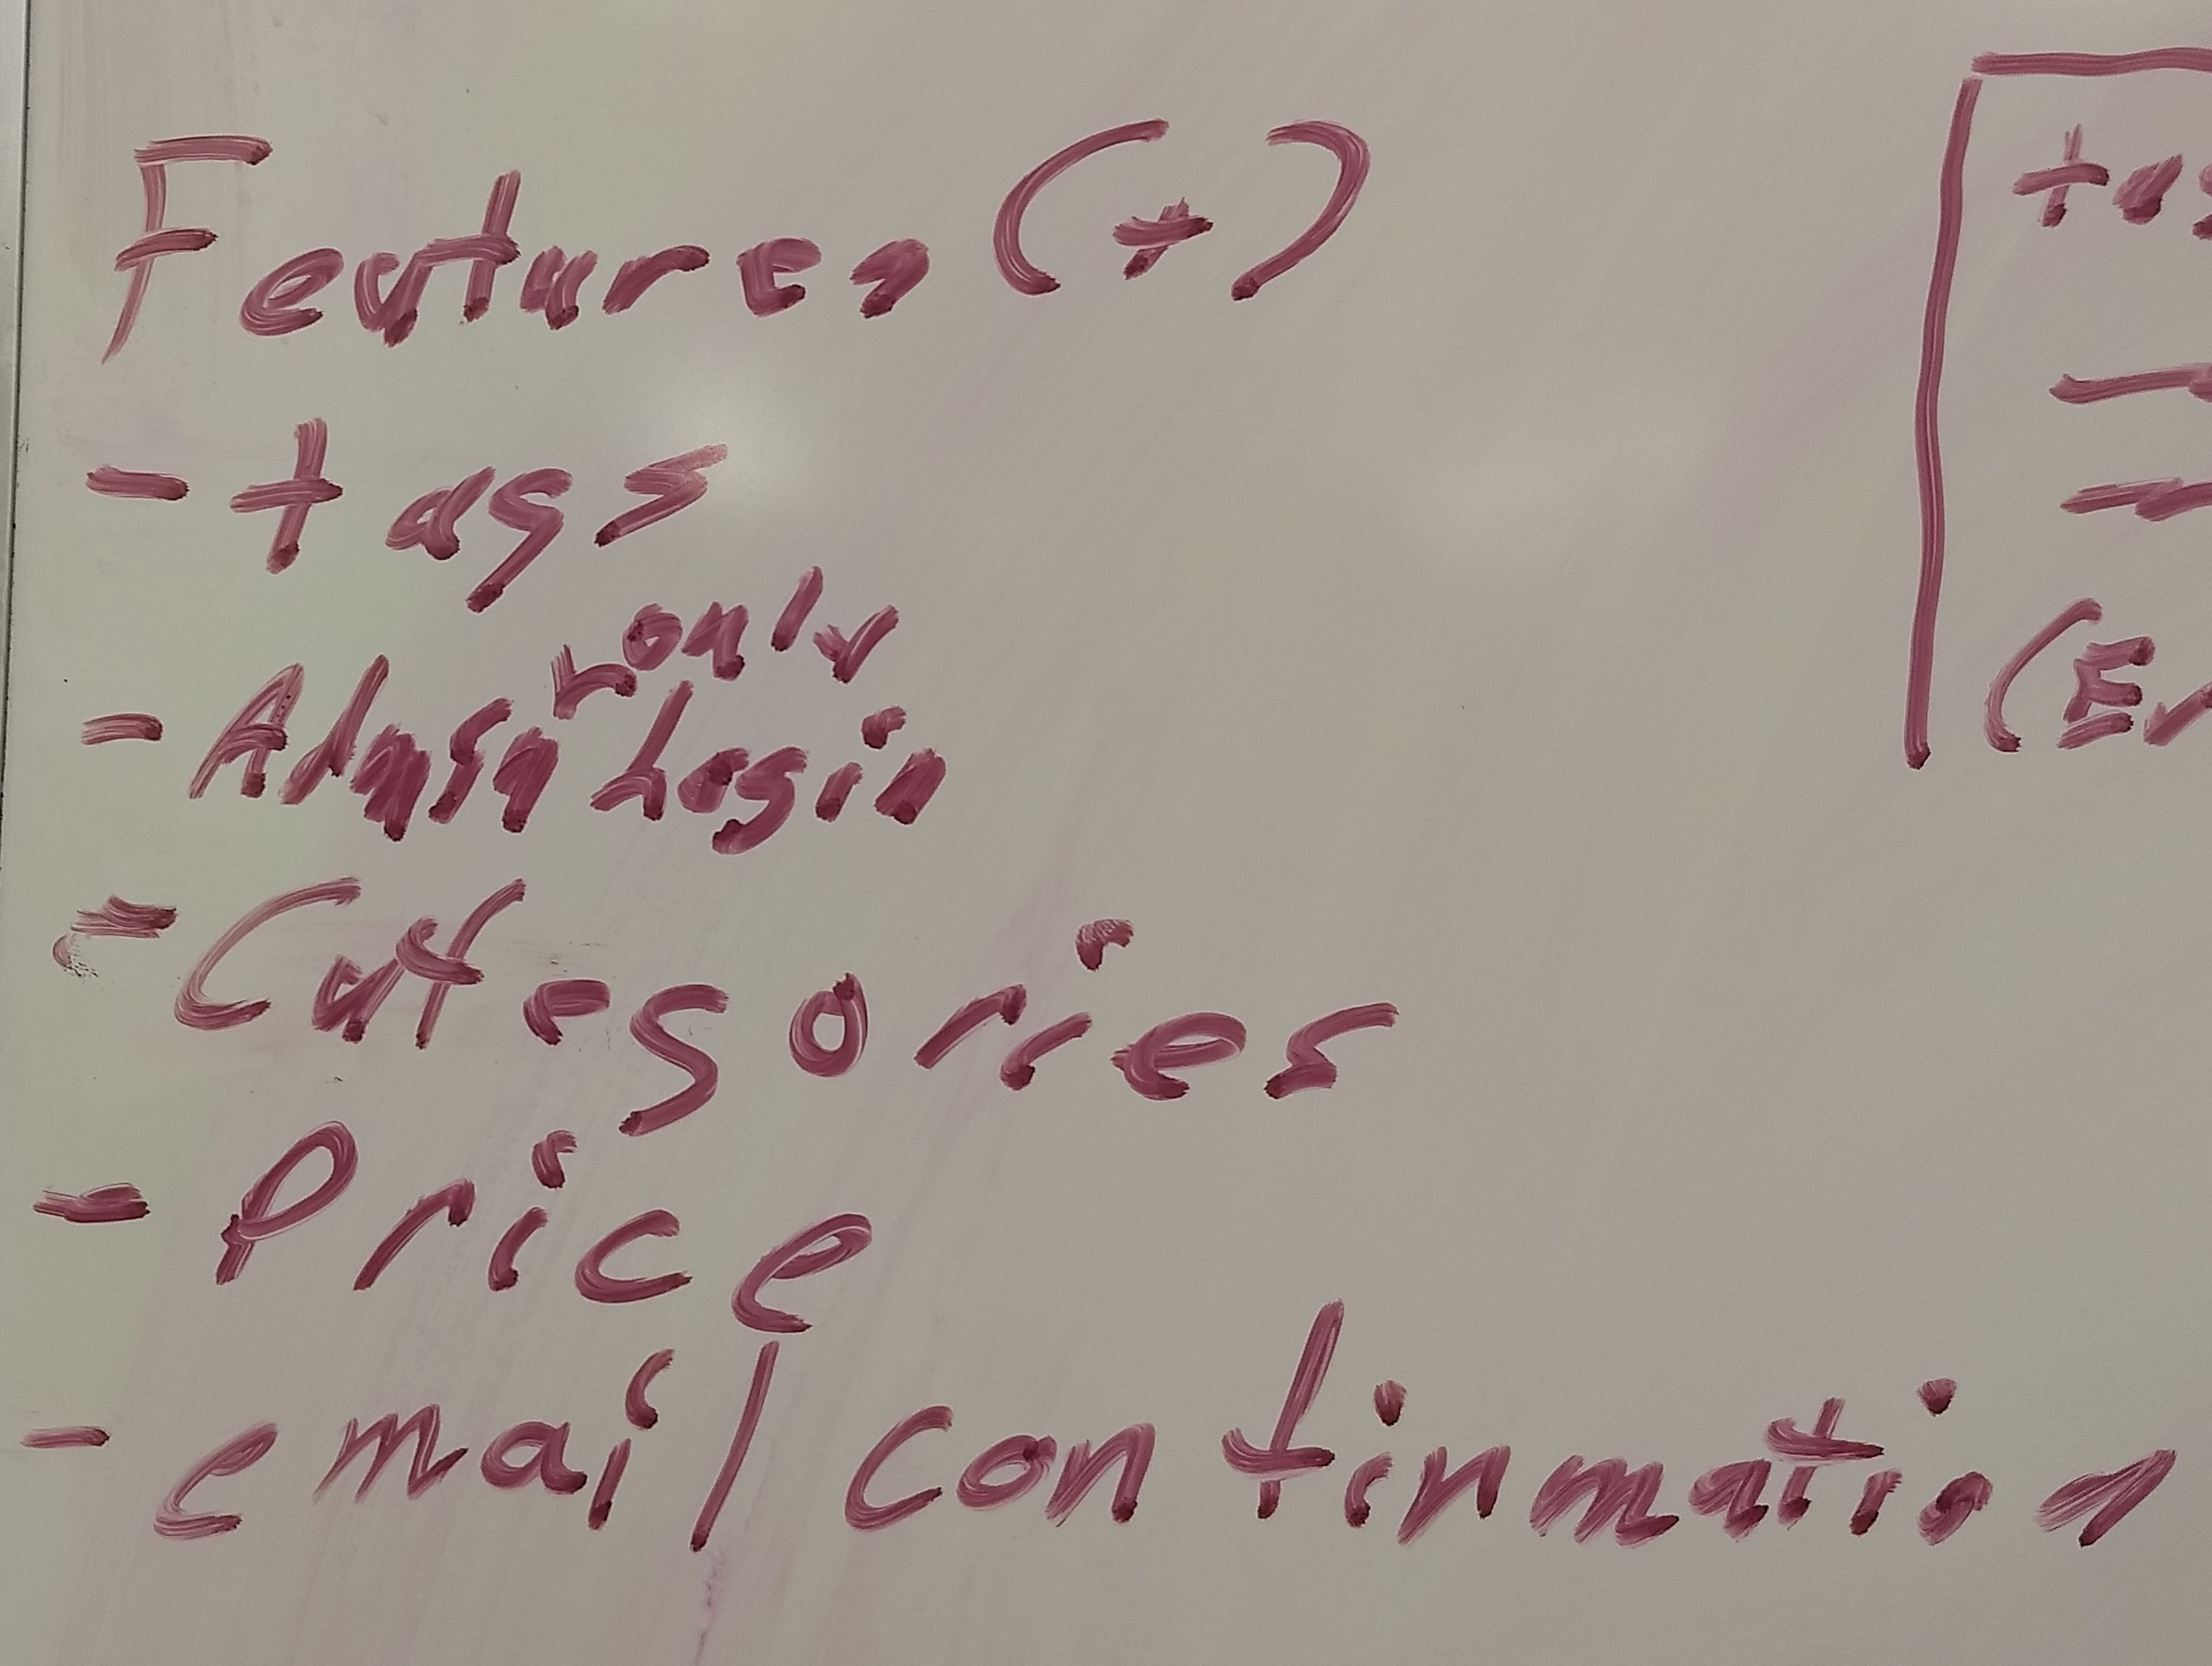 Features (+)
- tags
only
- Admin Login
- Categories
- Price
- email confirmation